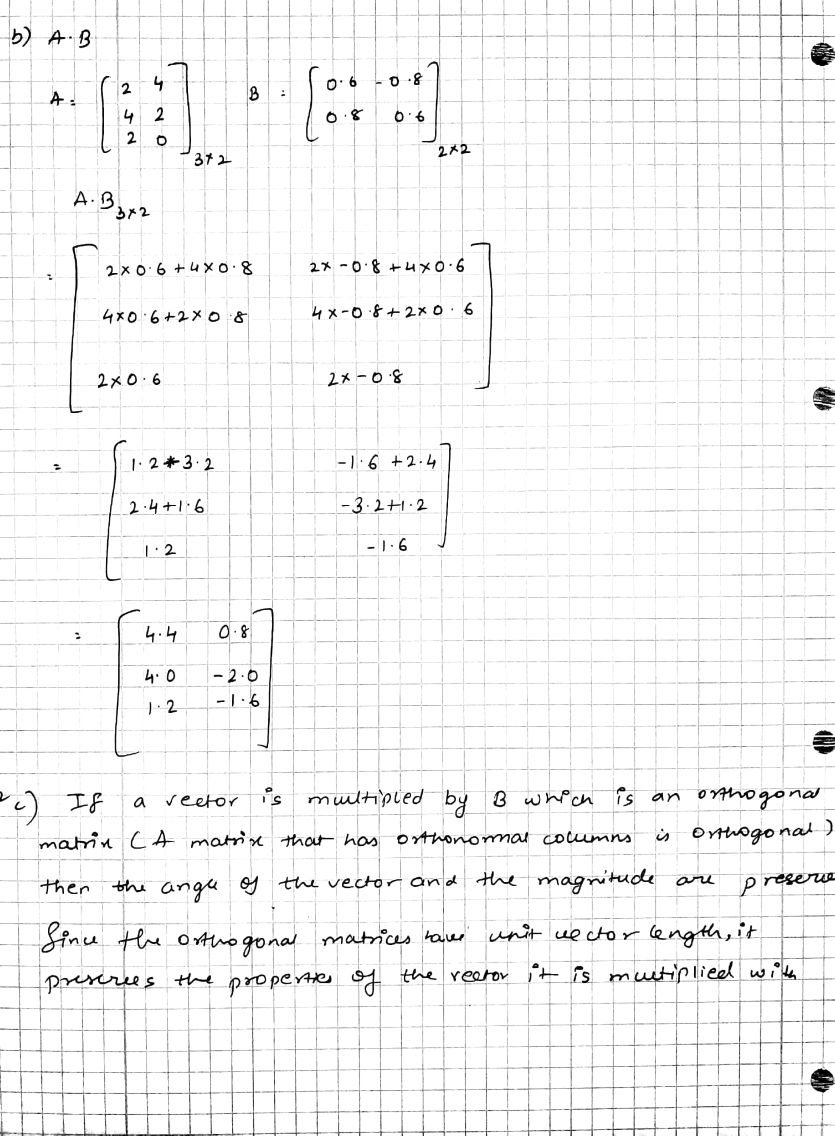 b) A·B
A = [ 2 4 B = [ 0·6 -0·8
4 2 0·8 0·6 ]
2 0 ] 3×2 2×2
A·B 3×2
= [ 2×0·6+4×0·8 2×-0·8+4×0·6
4×0·6+2×0·8 4×-0·8+2×0·6
2×0·6 2×-0·8 ]
= [ 1·2+3·2 -1·6+2·4
2·4+1·6 -3·2+1·2
1·2 -1·6 ]
= [ 4·4 0·8
4·0 -2·0
1·2 -1·6 ]
c) If a vector is multipled by B which is an orthogonal
matrix (A matrix that has orthonormal columns is orthogonal)
then the angle of the vector and the magnitude are preserve
Since the orthogonal matrices have unit vector length, it
preserves the properties of the vector it is multiplied with